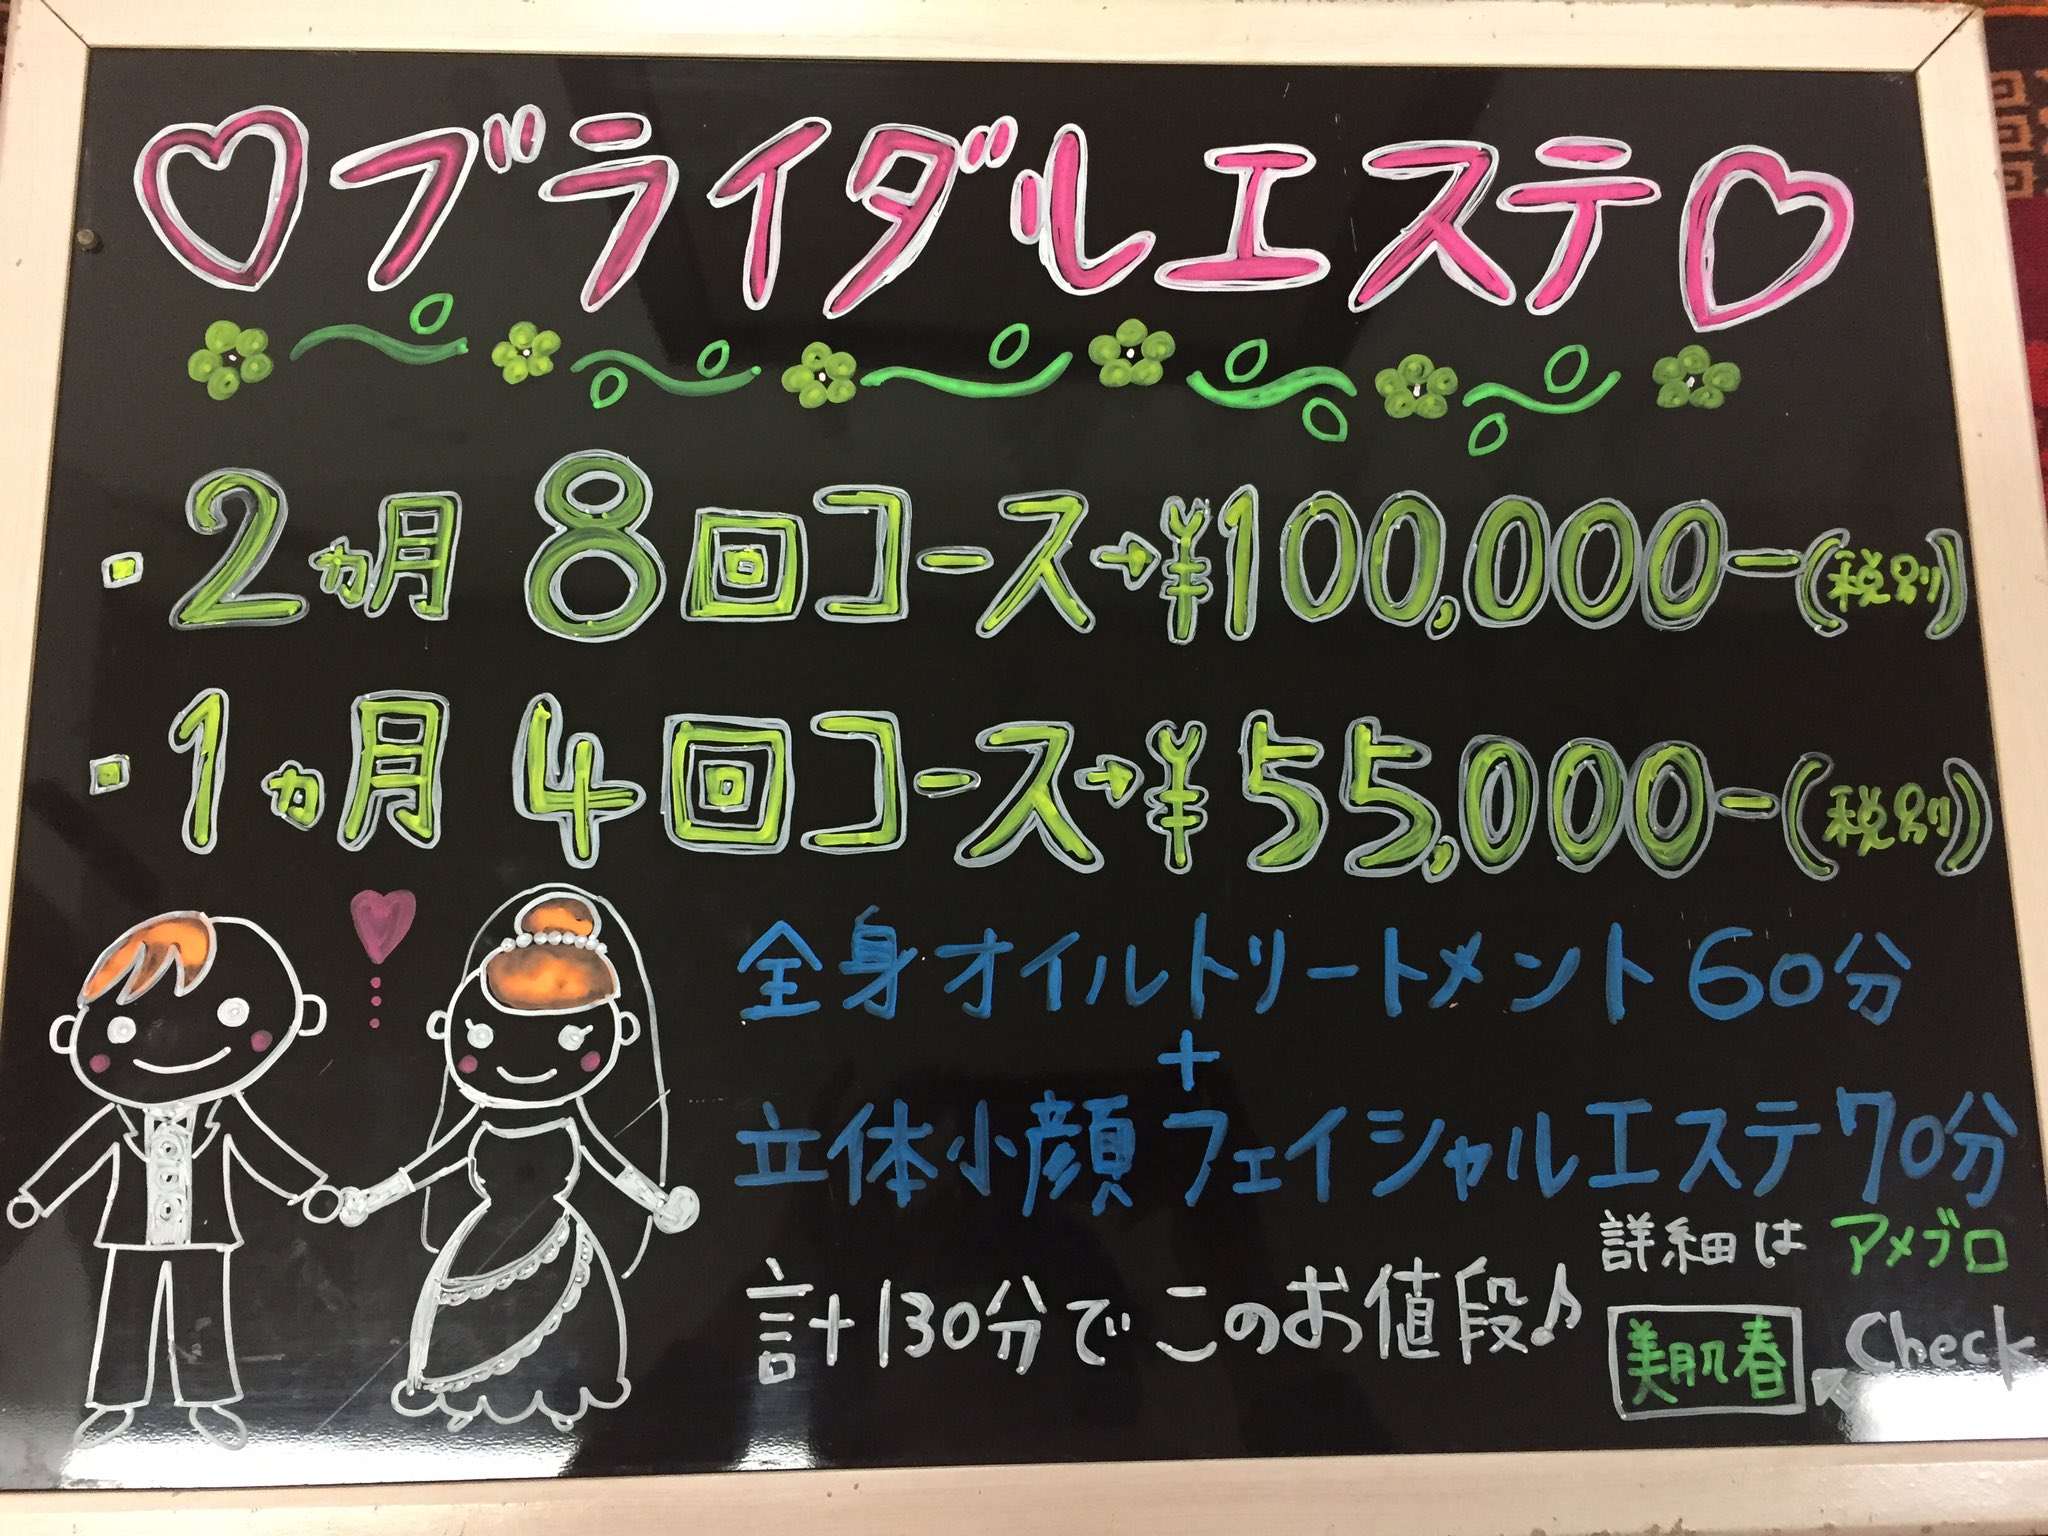 ♡ブライダルエステ♡
・2ヵ月 8回コース→¥100,000ー(税別)
・1ヵ月 4回コース→¥55,000ー(税別)
全身オイルトリートメント60分
+
立体小顔フェイシャルエステ70分
計130分でこのお値段♪
詳細はアメブロ
美肌春 Check